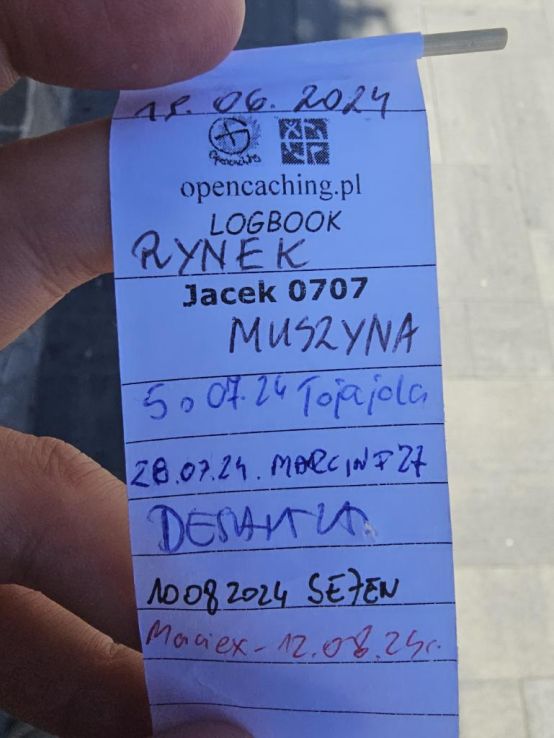 18. 06. 2024
Opencaching
opencaching.pl
LOGBOOK
RYNEK
Jacek 0707
MUSZYNA
5 o 07.24 Tojajola
28.07.24. MARCINP27
10 08 2024 SE7EN
Maciex - 12.08.24r.